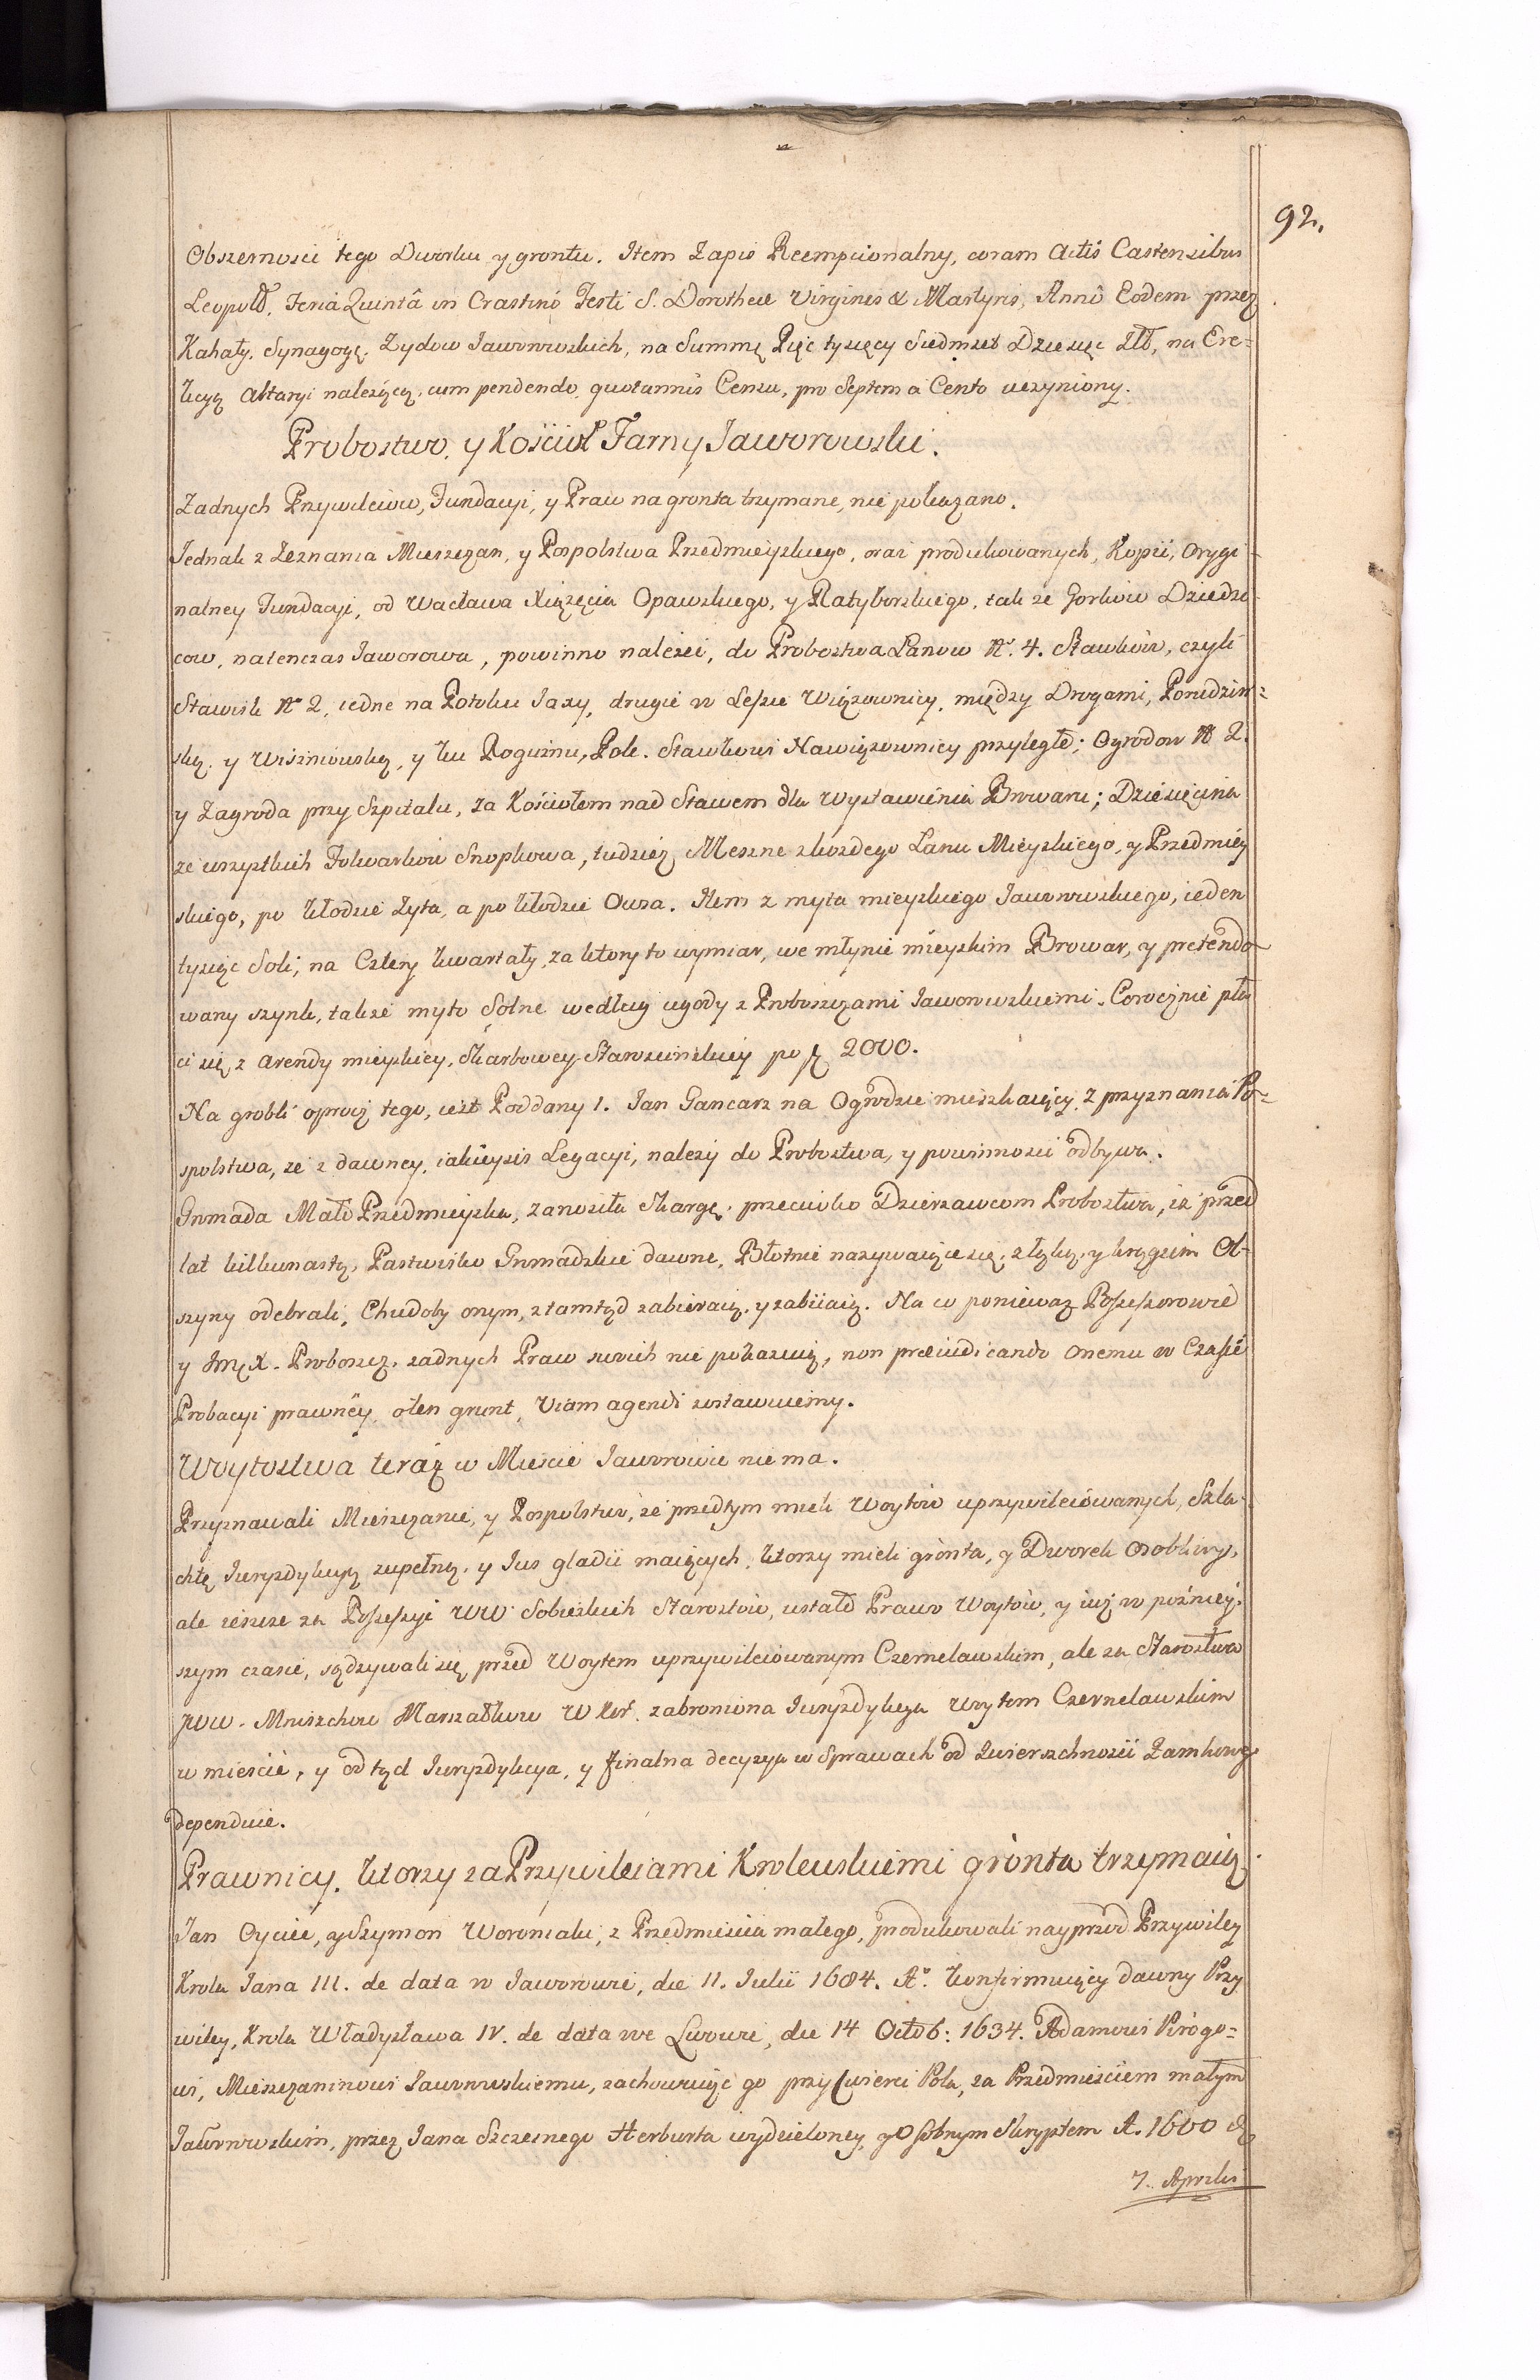 92.
Obszernosci tego Dworku y grontu. Item Zapis Reempcionalny, coram Actis Castrensibus
Leopold. Feria Quintâ in Crastino Festi S. Dorotheae Virginis & Martyris, Anno Eodem przez
Kahały, Synagogę, Zydow Jaworowskich, na Summę Pięc tysięcy Siedmset Dziesięc Złł, na Ere-
kcyą Altaryi nalezącą, cum pendendo quotannis Censu, pro Septem a Cento uczyniony.
Probostwo, y Kościoł Farny Jaworowski.
Zadnych Przywilejow, Fundacyi, y Praw na gronta trzymane, nie pokazano.
Jednak z Zeznania Mieszczan, y Pospolstwa Przedmieyskiego, oraz produkowanych, Kopii, orygi-
nalney Fundacyi, od Wacława Xiązęcia Opawskiego, y Ratyborskiego, tak ze Gorkow Dziedzi-
cow, natenczas Jaworowa, powinno nalezeć, do Probostwa Łanow N. 4. Stawkow, czyli
Stawisk N. 2, iedne na Potoku Jazy, drugie w Lesie Wiązownicy, między Drogami, Poredzin=
ską, y Wiszniowską, y ku Roguznu, Pole. Stawkowi Nawiązownicy przyległe; Ogrodow N. 2.
y Zagroda przy Szpitalu, za Kościołem nad Stawem dla Wystawienia Browaru; Dziesięcina
ze wszystkich Folwarkow Snopkowa, tudziez Meszne z kozdego Łanu Mieyskiego, y Przedmiey
skiego, po kłodzie Zyta, a po kłodzie Owsa. Item z myta mieyskiego Jaworowskiego, ieden
tysiąc Soli, na Cztery kwartały, za ktory to wymiar, we młynie mieyskim Browar, y pretendo-
wany szynk, takze myto Solne według ugody z Proboszczami Jaworowskiemi. Corocznie pła
ci się z arendy mieyskiey, Skarbowey Starościnskiey po f 2000.
Na grobli oprocz tego, iest Poddany 1. Jan Gancarz na Ogrodzie mieszkaiący, z przyznania Po=
spolstwa, ze z dawney, iakieyzis Legacyi, nalezy do Probostwa, y powinnosci odbywa.
Gromada Mało Przedmieyska, zanosiła Skargę, przeciwko Dzierzawcom Probostwa, iz przed
lat kilkunastą, Pastwisko Gromadzkie dawne, Błotnie nazywaiące się, z łąką, y krzęgiem Ol-
szyny odebrali, Chudoby onym, z tamtąd zabieraią, y zabiiaią. Na co poniewaz Possesorowie
y Jmę X. Proboszcz, zadnych Praw swoich nie pokazuią, non praeiudicando onemu w Czasie
Probacyi prawney, o ten grunt, Viam agendi zostawuiemy.
Woytostwa teraz w Miescie Jaworowie nie ma.
Przyznawali Mieszczanie, y Pospolstwo, ze przedtym mieli Woytow uprzywileiowanych, Szla-
chtę Jurysdykcyą zupełną, y Jus gladii maiących, ktorzy mieli gronta, y Dworek osobliwy,
ale ieszcze za Possessyi WW. Sobieskich Starostow, ustało Prawo Woytow, y iuz w poźniey-
szym czasie, sądzywali się przed Woytem uprzywileiowanym Czernelawskim, ale za Starostwa
JWW. Mniszchow Marszałkow W Kor. zabroniona Jurysdykcya Woytom Czernelawskim
w mieście, y od tąd Jurysdykcya, y finalna decyzya w Sprawach od Zwierzchności Zamkowey
dependuie.
Prawnicy, ktorzy za Przywileiami Krolewskiemi gronta trzymaią.
Jan Oyciec, y Szymon Woroniak, z Przedmieścia małego, produkowali nayprzod Przywiley
Krola Jana III. de data w Jaworowie, die 11. Julii 1684. A. konfirmuiący dawny Przy
wiley, Krola Władysława IV. de data we Lwowie, die 14 Octob: 1634. Adamowi Pirogo=
wi, Mieszczaninowi Jaworowskiemu, zachowuiąc go przy Cwierci Pola, za Przedmieściem małym
Jaworowskim, przez Jana Szczesnego Herburta wydzieloney, y Osobnym Skryptem A. 1600 die
7. Aprilis